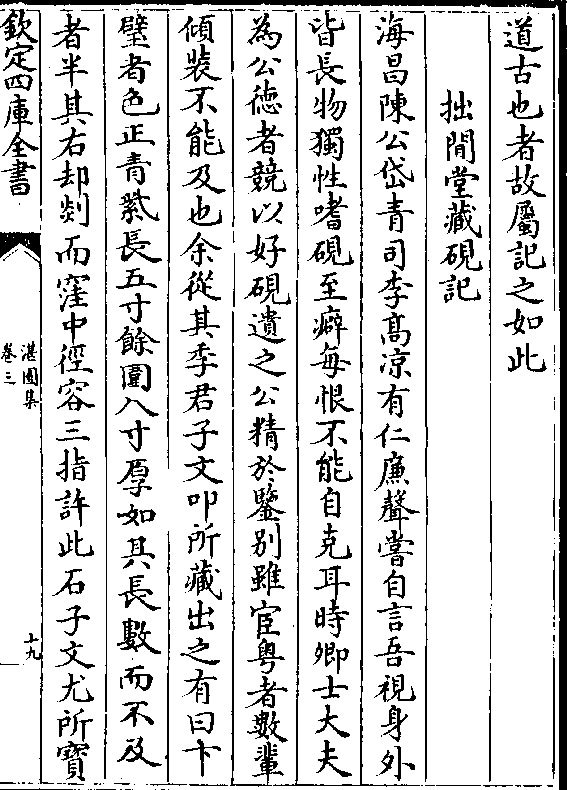 道古也者故屬記之如此
拙閒堂藏硯記
海昌陳公岱青司李髙凉有仁廉聲嘗自言吾視身外
皆長物獨性嗜硯至癖每恨不能自克耳時卿士大夫
為公徳者競以好硯遺之公精於鑒别雖宦粤者數輩
傾裝不能及也余從其季君子文叩所藏出之有曰卞
璧者色正青紫長五寸餘圍八寸厚如其長數而不及
者半其右却剡而窪中徑容三指許此石子文尤所寳
欽定四庫全書
湛園集
卷三
十九